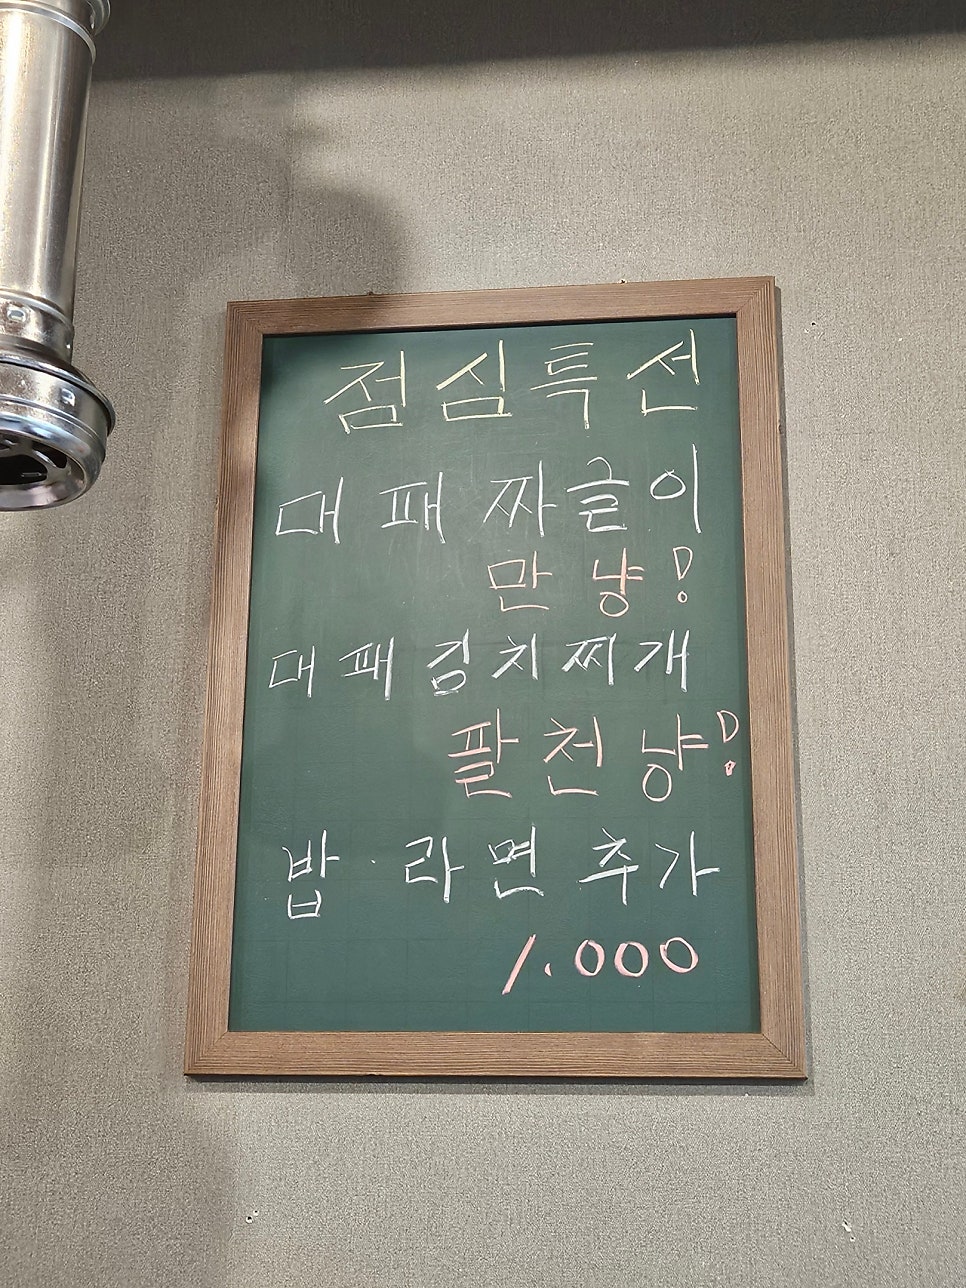 점심특선
대패짜글이
만냥!
대패김치찌개
팔천냥!
밥·라면추가
1.000